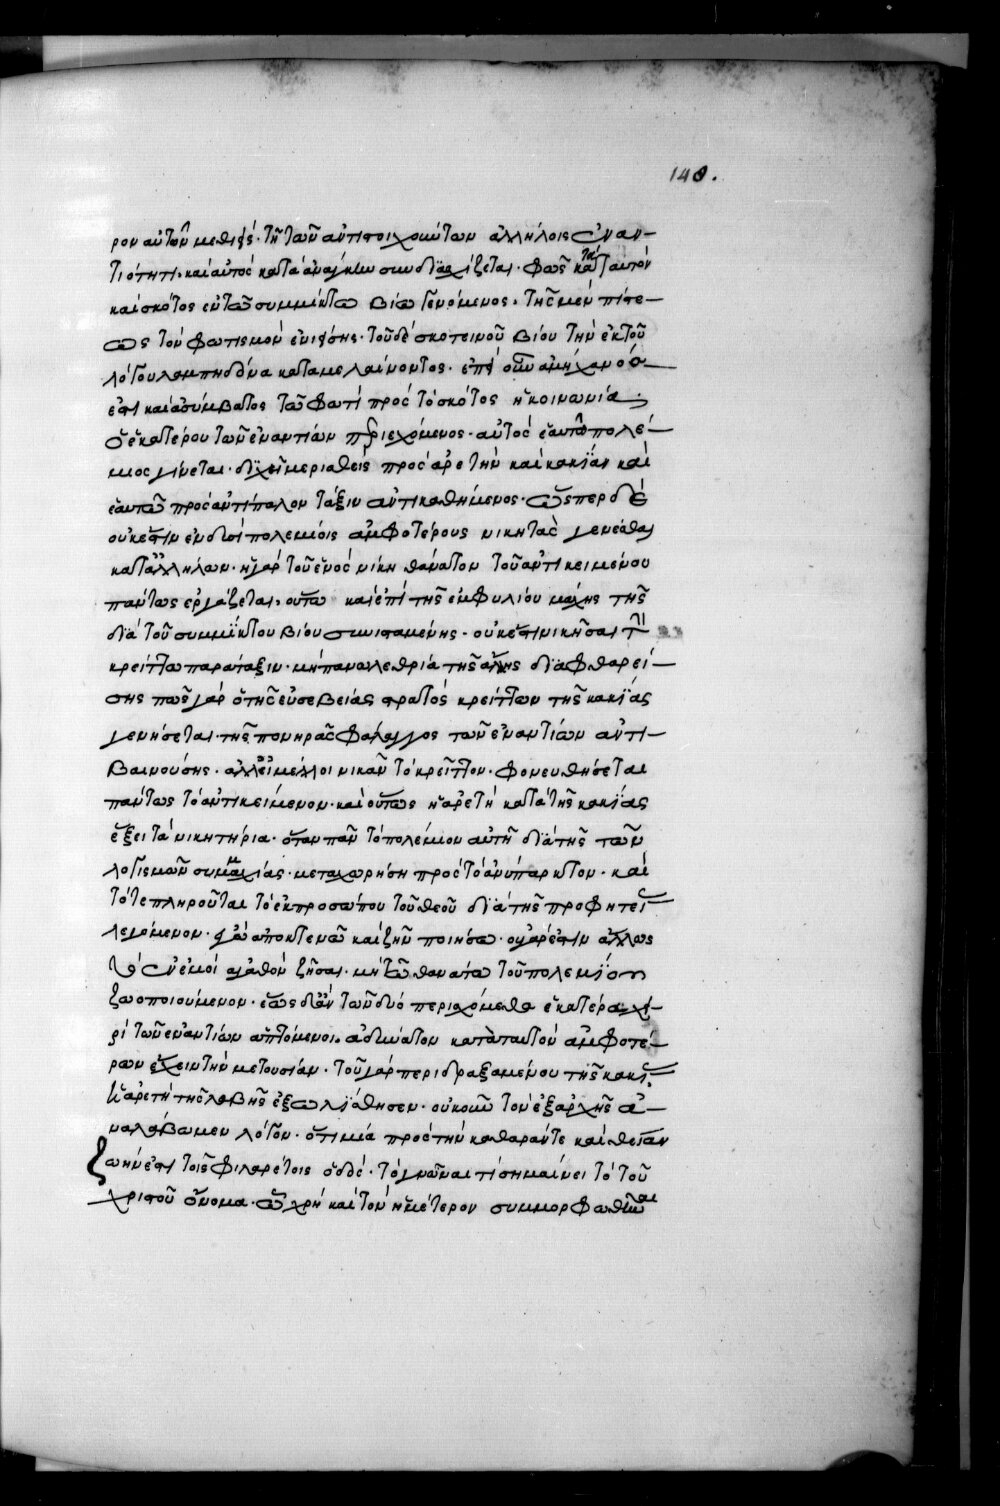 140.
ρον αὐτῶν μεθέξει· τῇ τῶν ἀντιστοιχούντων ἀλλήλοις ἐναν-
τιότητι· καὶ αὐτὸς κατὰ ἀνάγκην συνδιασχίζεται· φῶς κατὰ ταυτὸν
καὶ σκότος ἐν τῷ συμμίκτῳ βίῳ γενόμενος· τῆς μὲν πίστε-
ως τὸν φωτισμὸν ἐνιείσης· τοῦ δὲ σκοτεινοῦ βίου τὴν ἐκ τοῦ
λόγου λαμπηδόνα καταμελαίνοντος· ἐπεὶ οὖν ἀμήχανόν
ἐστι καὶ ἀσύμβατος τῷ φωτὶ πρὸς τὸ σκότος ἡ κοινωνία·
ὁ ἑκατέρου τῶν ἐναντίων περιεχόμενος· αὐτὸς ἑαυτῷ πολέ-
μιος γίνεται· διχῇ μερισθεὶς πρὸς ἀρετὴν καὶ κακίαν καὶ
ἑαυτῷ πρὸς ἀντίπαλον τάξιν ἀντικαθήμενος· ὥσπερ δὲ
οὐκ ἔστιν ἐν δυσὶ πολεμίοις ἀμφοτέρους νικητὰς γενέσθαι
κατ' ἀλλήλων· ἡ γὰρ τοῦ ἑνὸς νίκη θάνατον τοῦ ἀντικειμένου
πάντως ἐργάζεται· οὕτω καὶ ἐπὶ τῆς ἐμφυλίου μάχης τῆς
διὰ τοῦ συμμίκτου βίου συνισταμένης· οὐκ ἔστι νικῆσαι τὴν
κρείττω παράταξιν· μὴ πανωλεθρία τῆς ἄλλης διαφθαρεί-
σης πῶς γὰρ ὁ τῆς εὐσεβείας στρατὸς κρείττων τῆς κακίας
γενήσεται· τῆς πονηρᾶς φάλαγγος τῶν ἐναντίων ἀντι-
βαινούσης· ἀλλ' εἰ μέλλοι νικᾶν τὸ κρεῖττον· φονευθήσεται
πάντως τὸ ἀντικείμενον· καὶ οὕτως ἡ ἀρετὴ κατὰ τῆς κακίας
ἕξει τὰ νικητήρια· ὅταν πᾶν τὸ πολέμιον αὐτῇ διὰ τῆς τῶν
λογισμῶν συμμαχίας· μεταχωρήσῃ πρὸς τὸ ἀνύπαρκτον· καὶ
τότε πληροῦται τὸ ἐκ προσώπου τοῦ θεοῦ διὰ τῆς προφητεί
λεγόμενον· ἐγὼ ἀποκτενῶ καὶ ζῆν ποιήσω· οὐ γάρ ἐστιν ἄλλως
τὸ ἐν ἐμοὶ ἀγαθὸν ζῆσαι· μὴ τῷ θανάτῳ τοῦ πολεμίου
ζωοποιούμενον· ἕως δ' ἂν τῶν δύο περιεχόμεθα ἑκατέρᾳ χει-
ρὶ τῶν ἐναντίων ἁπτόμενοι· ἀδύνατον κατὰ ταυτὸν ἀμφοτέ-
ρων ἔχειν τὴν μετουσίαν· τοῦ γὰρ περιδραξαμένου τῆς κακί
ἡ ἀρετὴ τῆς λαβῆς ἐξωλίσθησεν· οὐκοῦν τὸν ἐξαρχῆς ἀ-
ναλάβωμεν λόγον· ὅτι μία πρὸς τὴν καθαράν τε καὶ θείαν
ζωήν ἐστι τοῖς φιλαρέτοις ὁδός· τὸ γνῶναι τί σημαίνει τὸ τοῦ
χριστοῦ ὄνομα· ᾧ χρὴ καὶ τὸν ἡμέτερον συμμορφωθῆναι